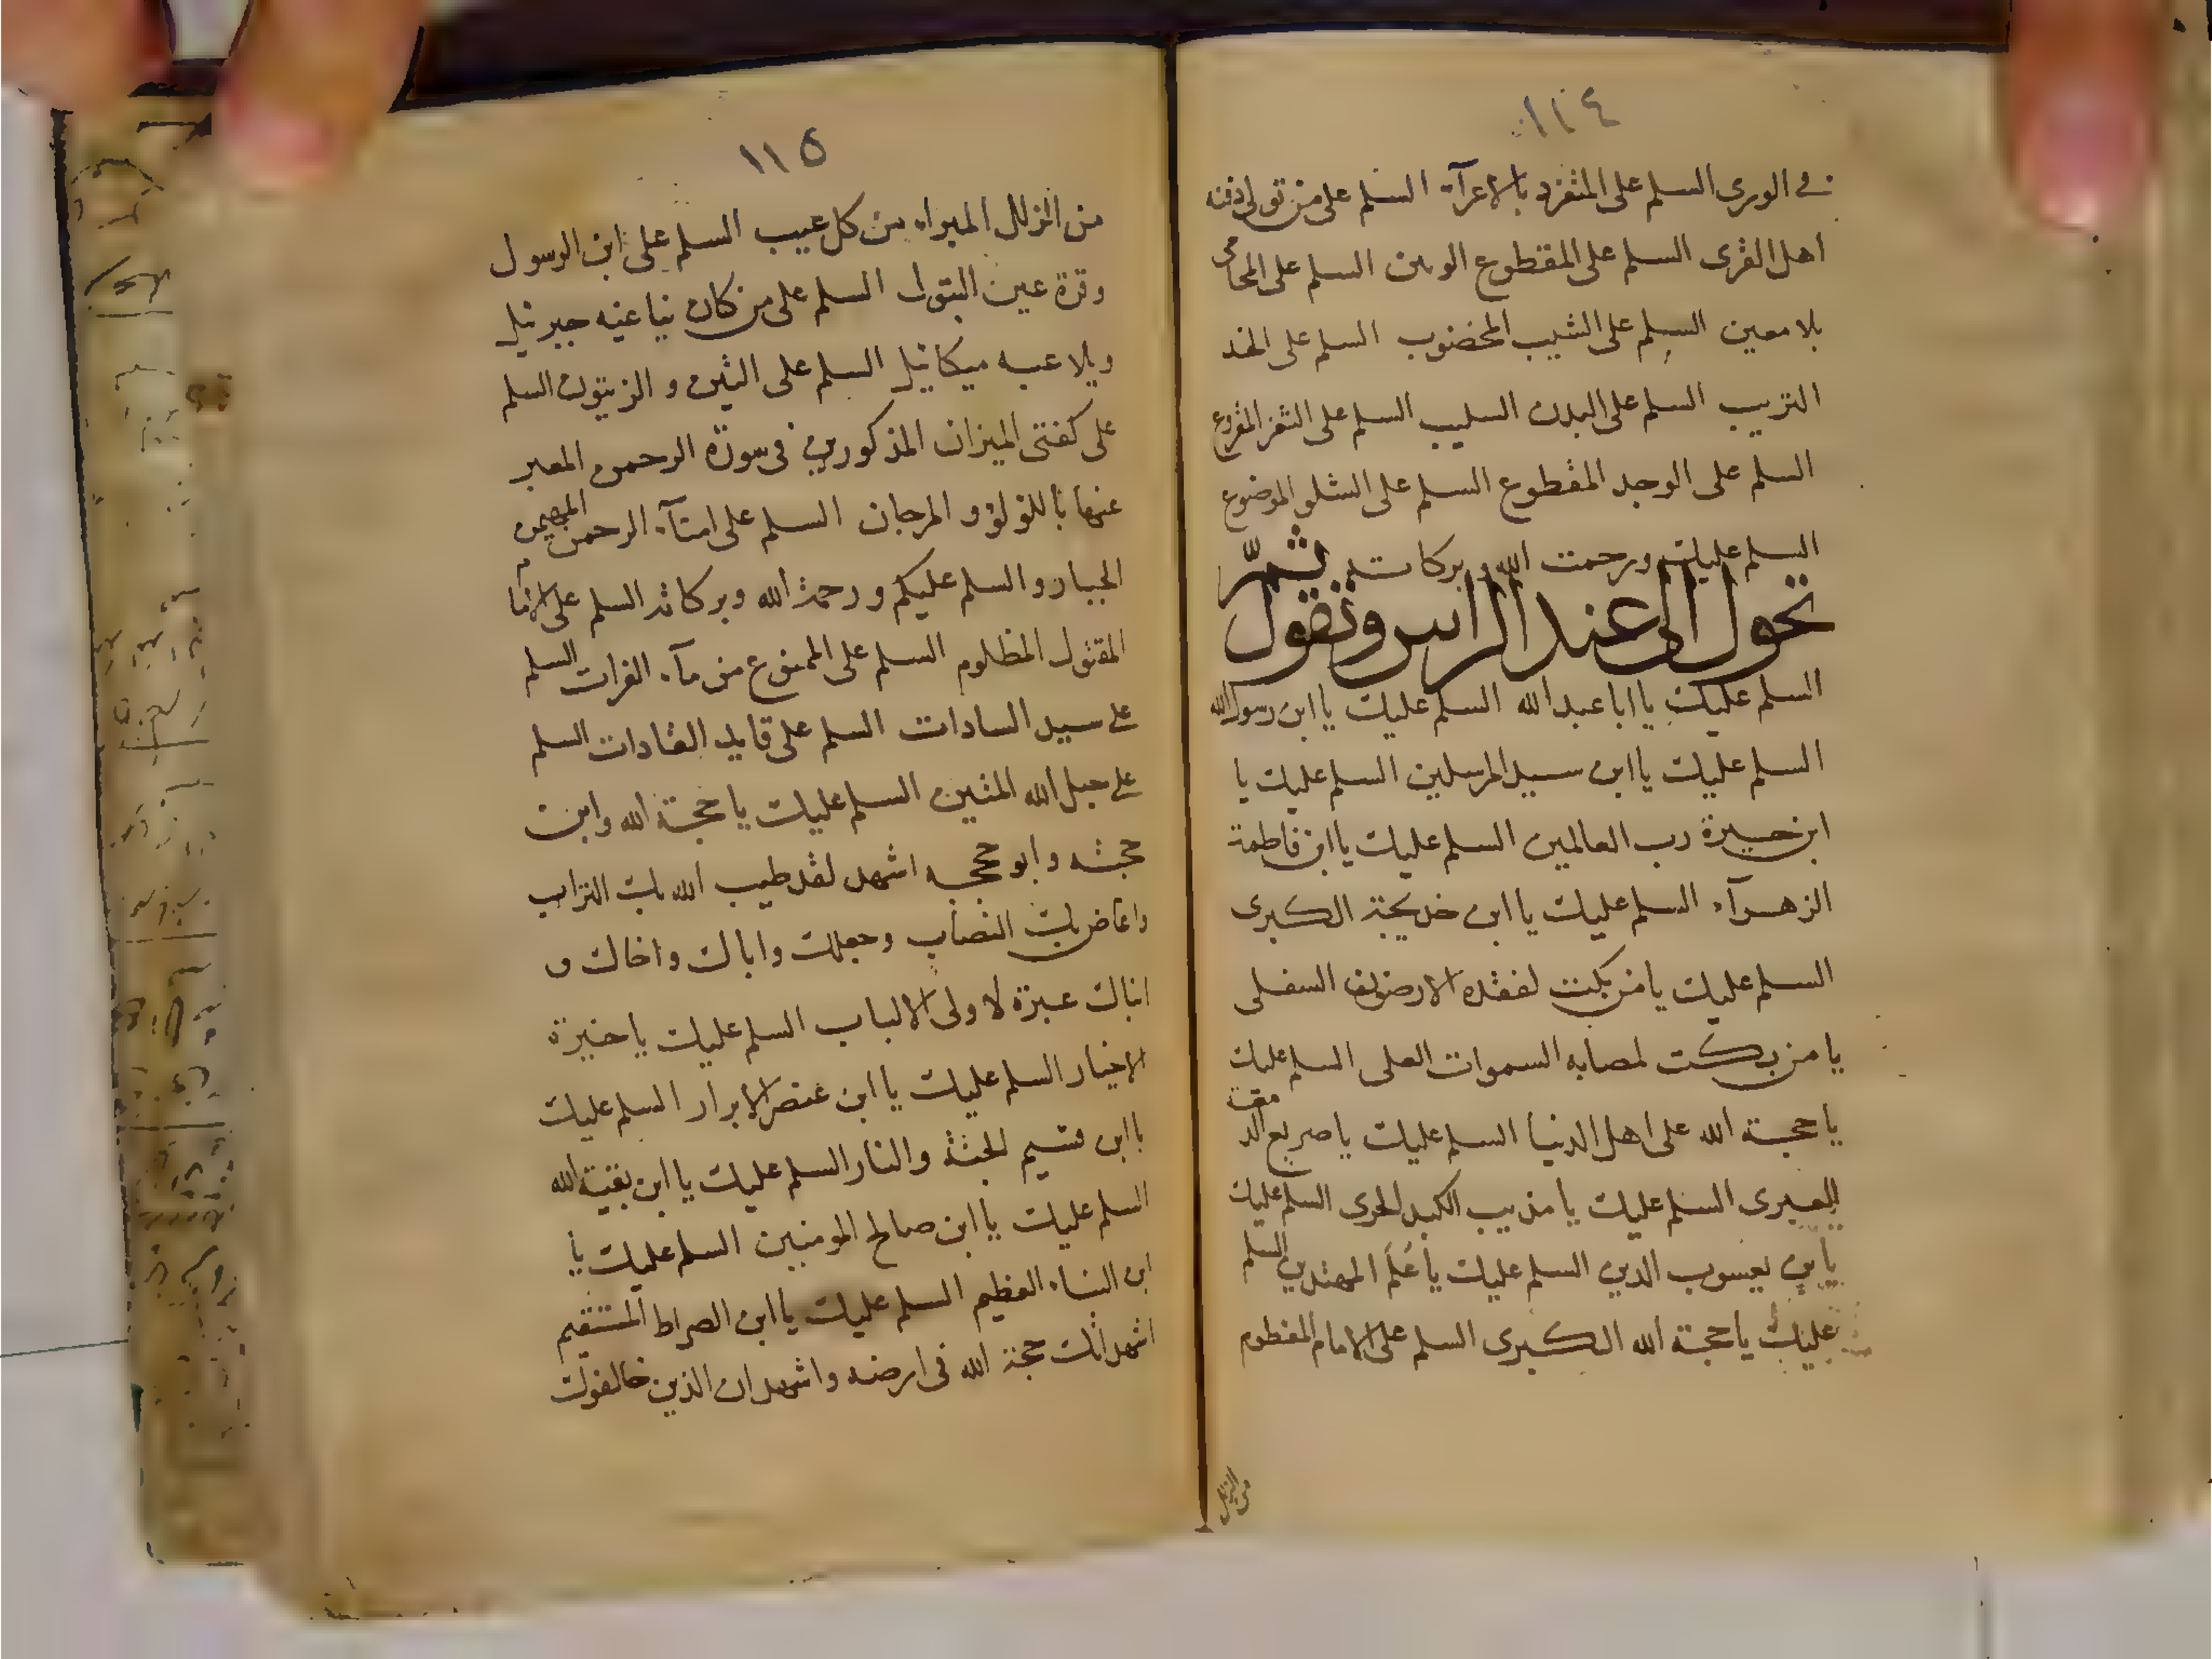 ١١٤
في الورى السلم على المنفرد بالاعرآء السلم على من تولى دفنه
اهل القرى السلم على المقطوع الوتين السلم على المحامى
بلا معين السلم على الشيب المخضوب السلم على الخد
التريب السلم على البدن السليب السلم على الثغر المقروع
السلم على الوجد المقطوع السلم على الشلو الموضوع
السلم عليك ورحمت الله وبركاته ثمّ
تحول الى عند الراس وتقول
السلم عليك يا ابا عبد الله السلم عليك يا ابن رسول الله
السلم عليك يا ابن سيد المرسلين السلم عليك يا
ابن خيرة رب العالمين السلم عليك يا ابن فاطمة
الزهرآء السلم عليك يا ابن خديجة الكبرى
السلم عليك يا من بكت لفقده الارضون السفلى
يا من بكت لمصابه السموات العلى السلم عليك
يا حجة الله على اهل الدنيا السلم عليك يا صريع الدمعة
العبرى السلم عليك يا مذيب الكبد الحرى السلم عليك
يا بن يعسوب الدين السلم عليك يا عَلَم المهتدين السلم
عليك يا حجة الله الكبرى السلم على الامام المفطوم
من الزلل
١١٥
من الزلل المبراء من كل عيب السلم على ابن الرسول
وقرة عين البتول السلم على من كان يناغيه جبرئيل
ويلاعبه ميكائيل السلم على التين و الزيتون السلم
على كفتى الميزان المذكورين في سورة الرحمن المعبر
عنهما باللؤلؤ و المرجان السلم على امنآء الرحمن المهيمن
الجبار و السلم عليكم و رحمة الله وبركاته السلم على
المقتول المظلوم السلم على الممنوع من مآء الفرات السلم
على سيد السادات السلم على قايد القادات السلم
على حبل الله المتين السلم عليك يا حجة الله وابن
حجته وابو حججه اشهد لقد طيب الله بك التراب
واعاض بك النصاب وجعلك واباك واخاك و
ابناك عبرة لاولى الالباب السلم عليك يا خيرة
الاخيار السلم عليك يا ابن عنصر الابرار السلم عليك
يا ابن قسيم الجنة والنار السلم عليك يا ابن بقية الله
السلم عليك يا ابن صالح المومنين السلم عليك يا
ابن النباء العظيم السلم عليك يا ابن الصراط المستقيم
اشهد انك حجة الله في ارضه واشهد ان الذين خالفوك